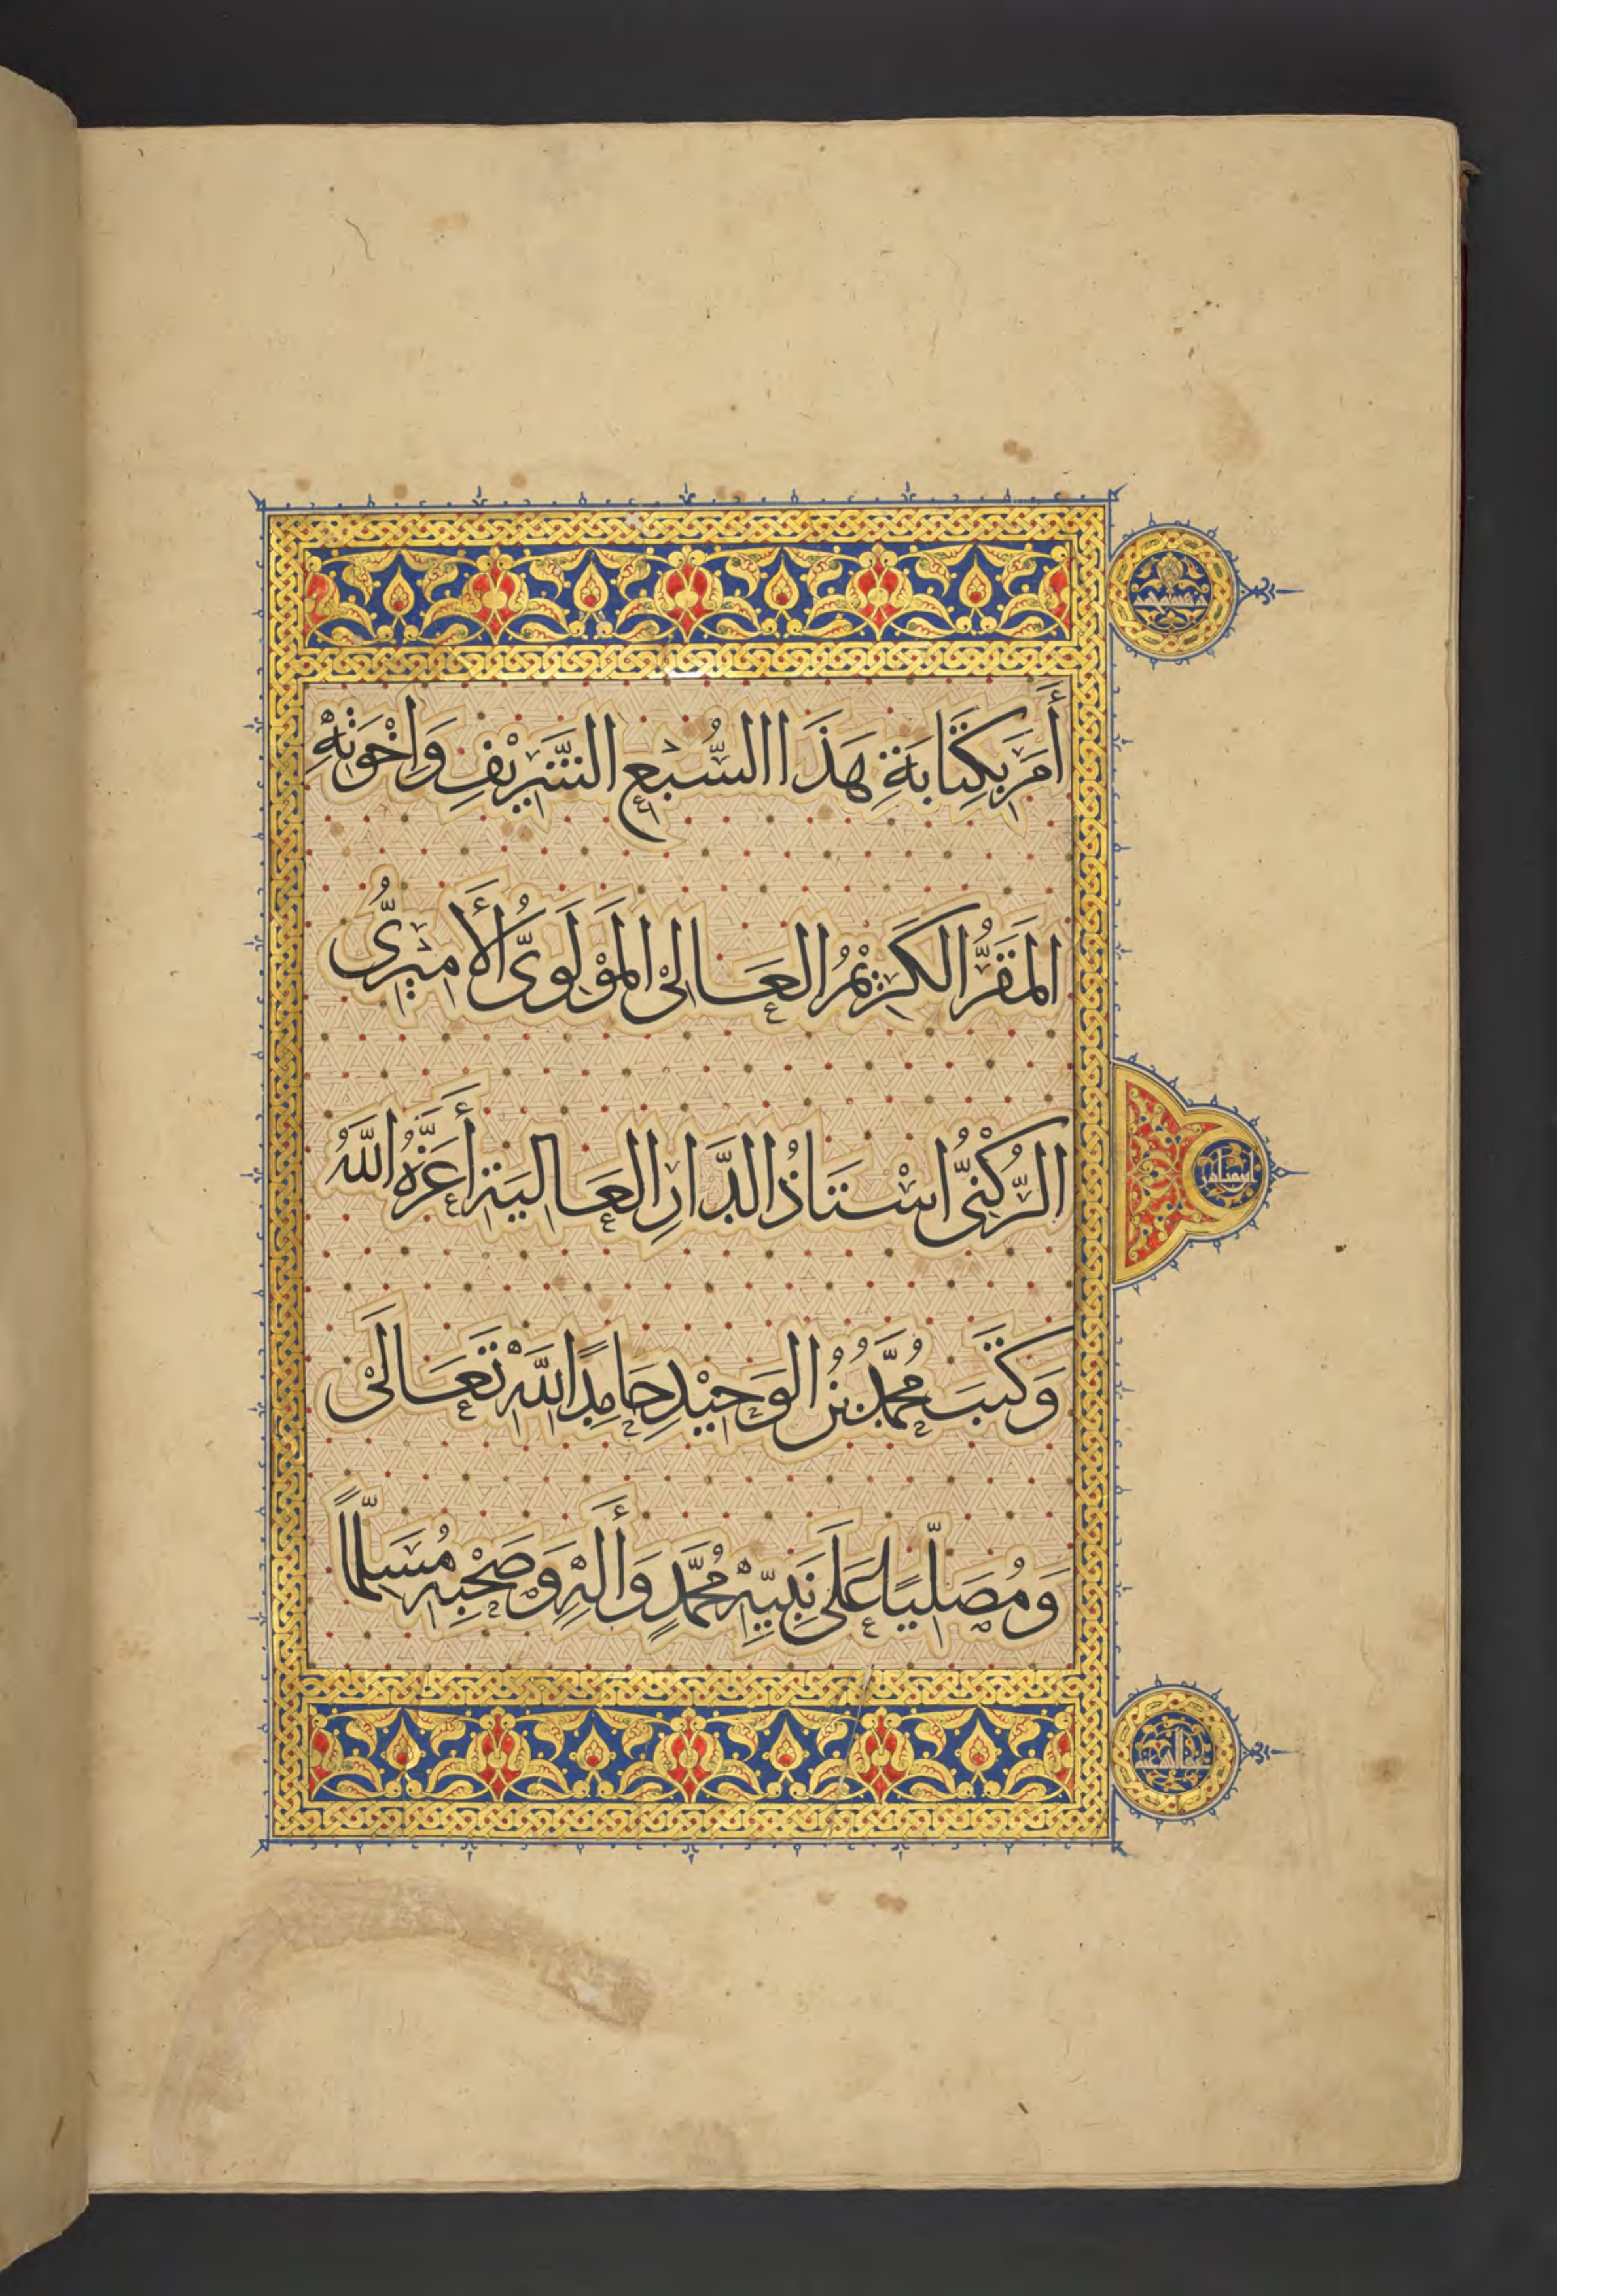 أَمَرَ بِكِتَابَةِ هَذَا السُّبْعِ الشَّرِيْفِ وَاخْوَتِهِ
المَقَرُّ الكَرِيْمُ العَالِىْ المَوْلَوِىُّ الأَمِيْرِىُّ
الرُّكْنِىُّ اسْتَاذُ الدَّارِ العَالِيَةِ أَعَزَّهُ اللَّهُ
وَكَتَبَ مُحَمَّدُ بْنُ الوَحِيْدِ حَامِدًا لِلَّهِ تَعَالَىْ
وَمُصَلِّيًا عَلَى نَبِيِّهِ مُحَمَّدٍ وَأَلِهِ وَصَحْبِهِ مُسَلِّمًا